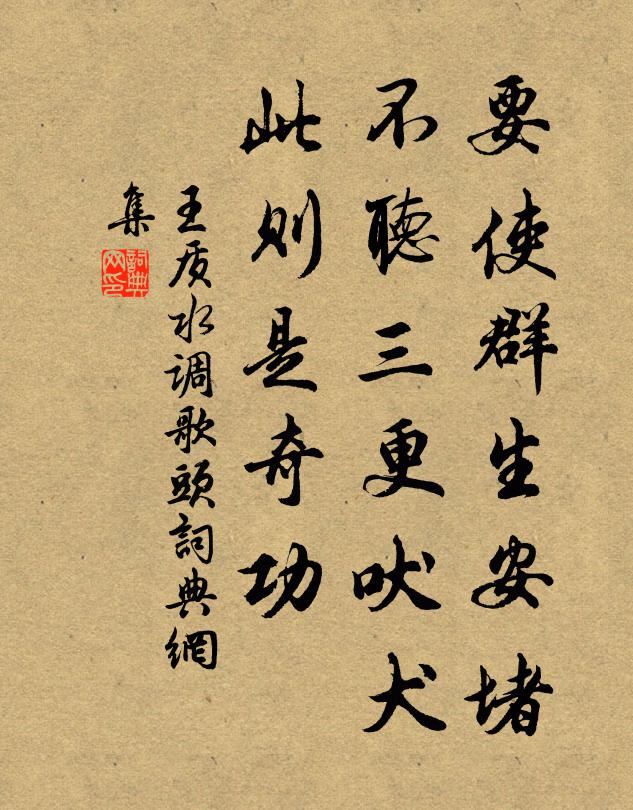 要使群生安堵
不聽三更吠犬
此则是奇功
王质水调歌頭詞典網
集
詞典網印